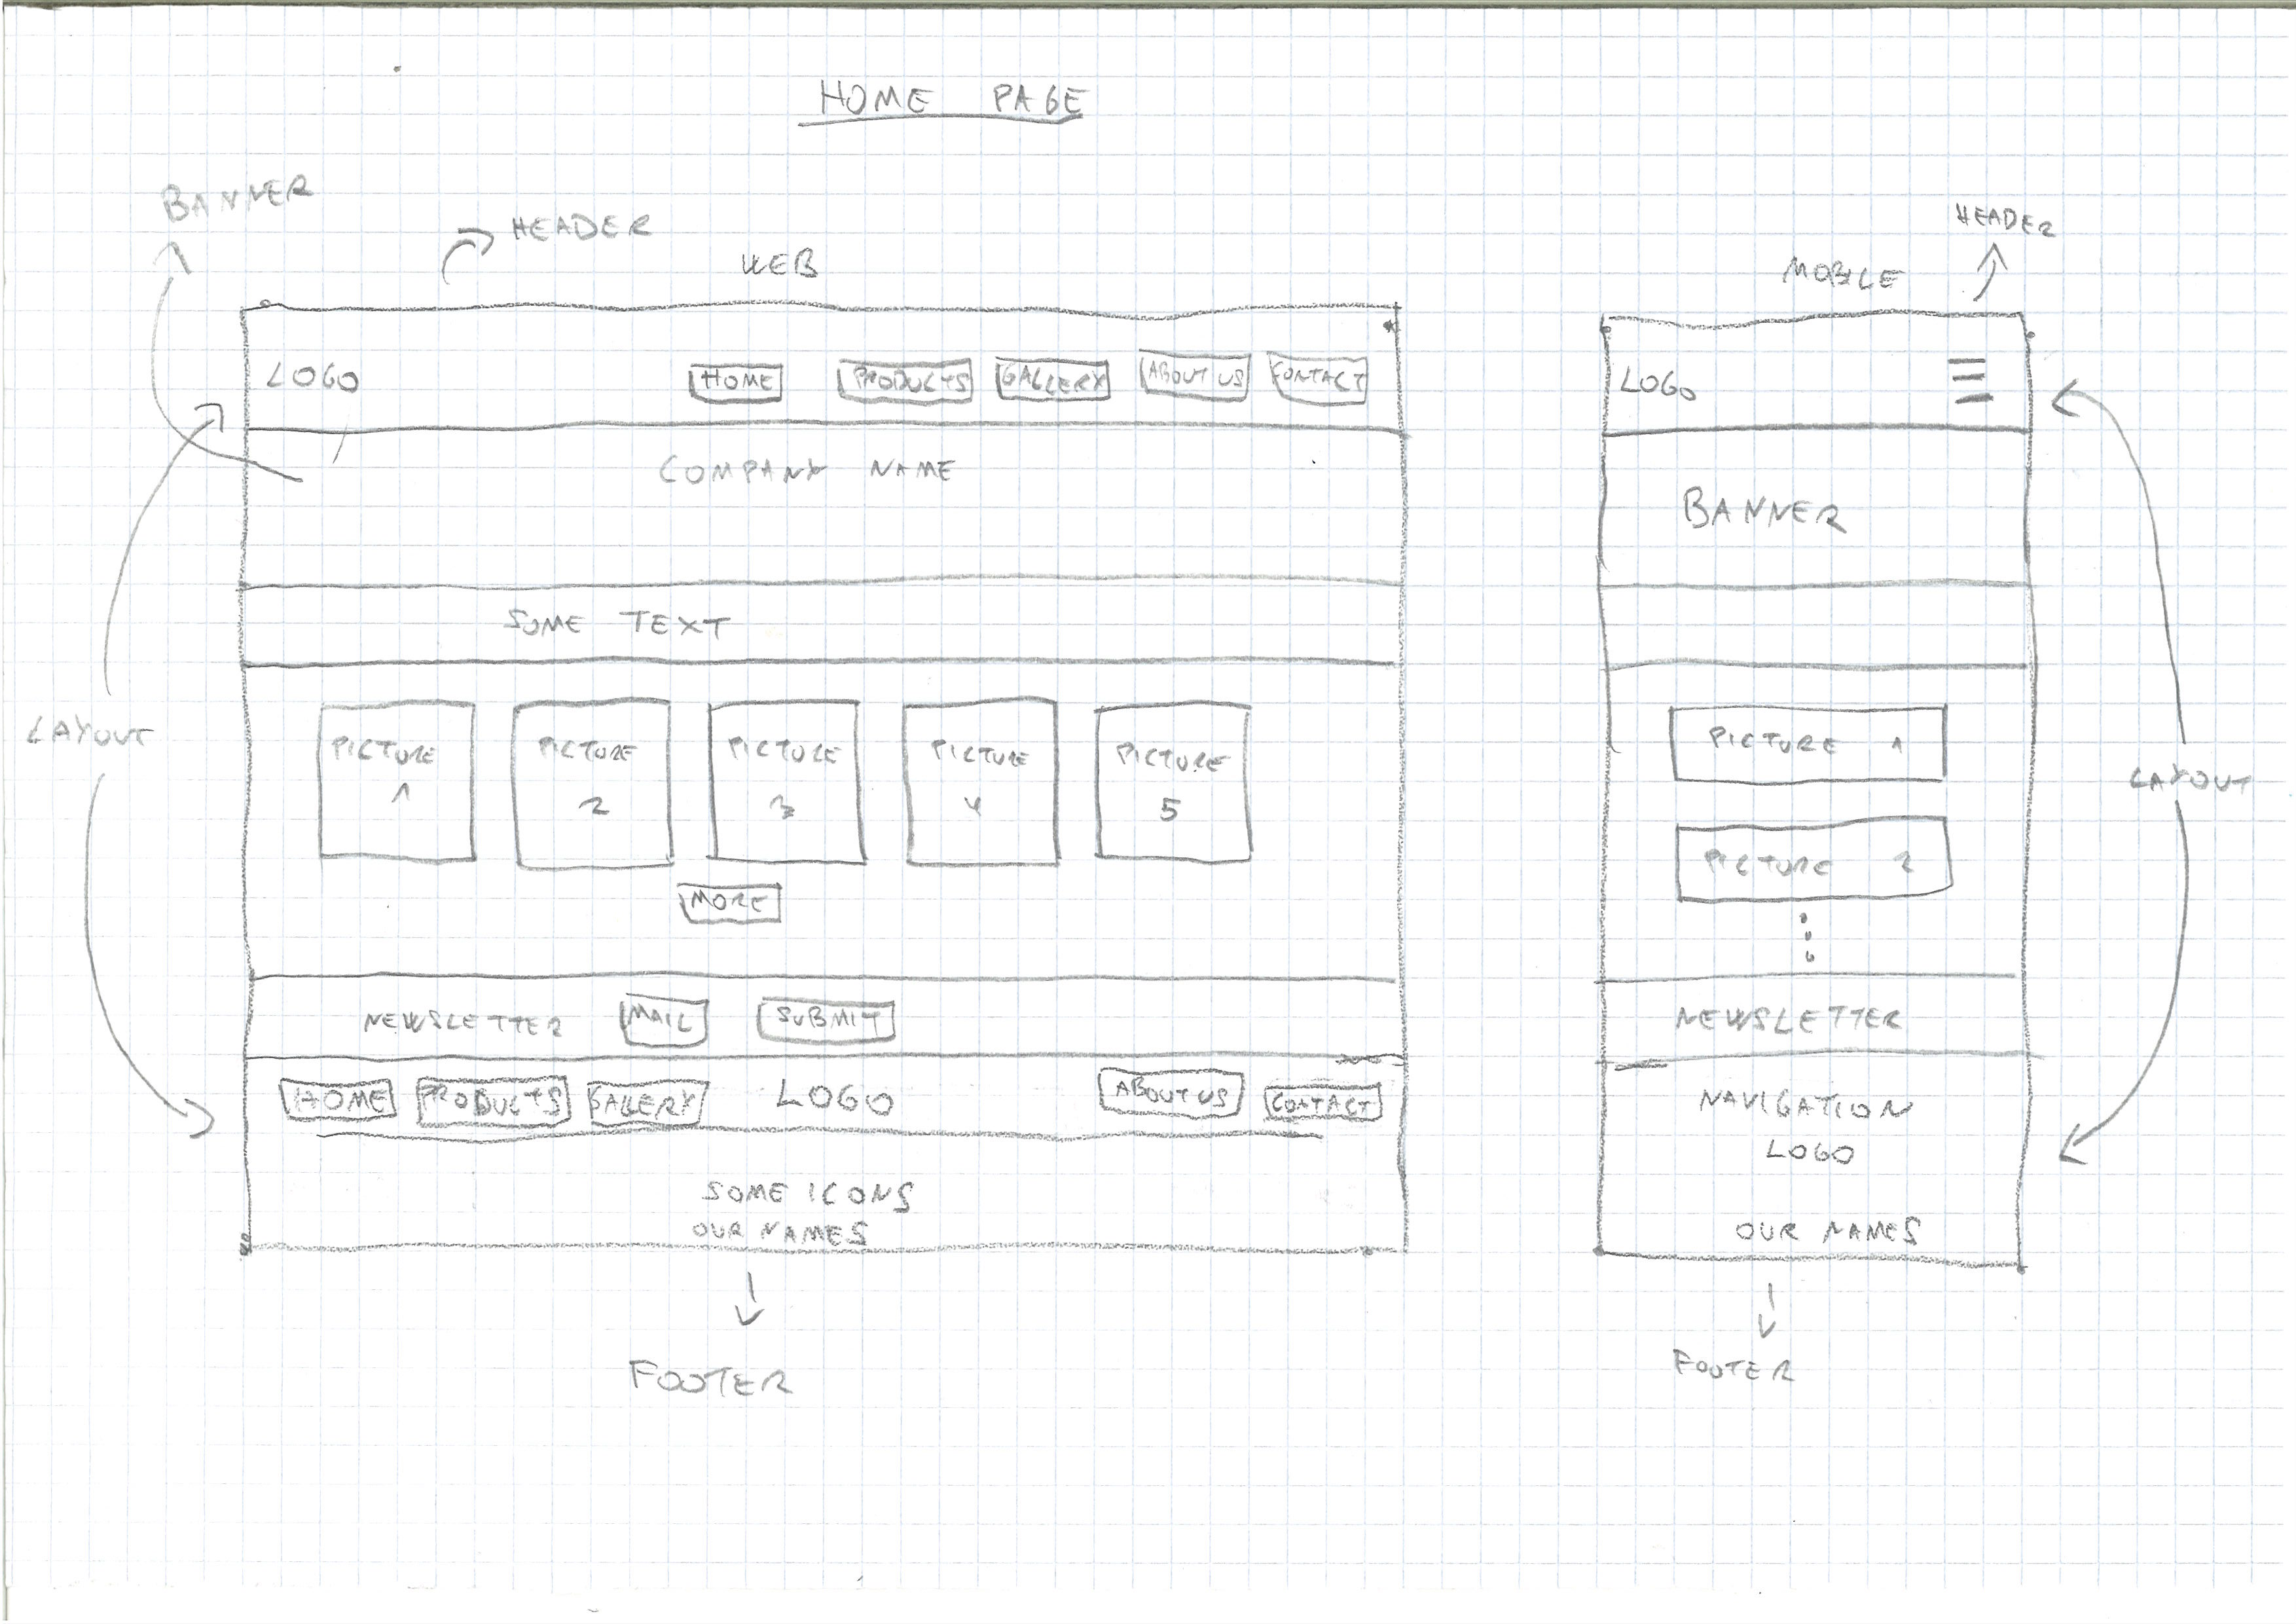 HOME PAGE
BANNER
HEADER
WEB
LOGO
HOME
PRODUCTS
GALLERY
ABOUT US
CONTACT
COMPANY NAME
SOME TEXT
LAYOUT
PICTURE
1
PICTURE
2
PICTURE
3
PICTURE
4
PICTURE
5
MORE
NEWSLETTER
MAIL
SUBMIT
HOME
PRODUCTS
GALLERY
LOGO
ABOUT US
CONTACT
SOME ICONS
OUR NAMES
FOOTER
HEADER
MOBILE
LOGO
BANNER
PICTURE 1
PICTURE 2
LAYOUT
NEWSLETTER
NAVIGATION
LOGO
OUR NAMES
FOOTER